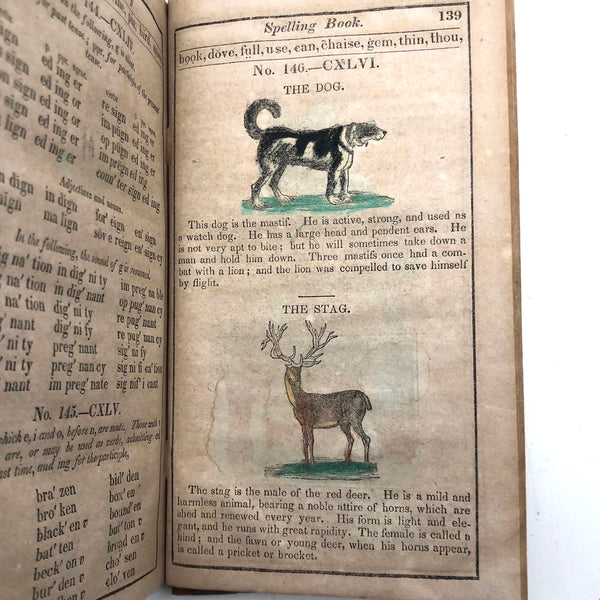 144.—CXLIV.
ed ing er
ed ing er
ed ing er
re sign ed ing
im pūgn ed ing er
op pūgn ed ing er
im prēgn ed ing er
coun' ter sign ed ing
Adjectives and nouns.
in dign for' eign en' sign
ma lign sov' e reign
In the following, the sound of g is resumed.
na' tion in dig' ni ty im preg' na ble
na' tion in dig' nant op pug' nan cy
dig' ni fy re pug' nant
ni ty preg' nant re pug' nan cy
ni fy preg' nan cy sig' ni fi ca' tion
nant im preg' nate sig' nif' i cant
No. 145.—CXLV.
which e, i and o, before n, are mute. Those with
are, or may be used as verbs, admitting ed
past time, and ing for the participle,
bra' zen bid' den
bro' ken box' en
black' en v bound' en
bat' ten but' ton v
beck' on v broad en v
bur' den v cho' sen
clo' ven
Spelling Book. 139
book, dove, full, use, can, chaise, gem, thin, thou,
No. 146.—CXLVI.
THE DOG.
This dog is the mastif. He is active, strong, and used as
a watch dog. He has a large head and pendent ears. He
is not very apt to bite; but he will sometimes take down a
man and hold him down. Three mastifs once had a com-
bat with a lion; and the lion was compelled to save himself
by flight.
THE STAG.
The stag is the male of the red deer. He is a mild and
harmless animal, bearing a noble attire of horns, which are
shed and renewed every year. His form is light and ele-
gant, and he runs with great rapidity. The female is called a
hind; and the fawn or young deer, when his horns appear,
is called a pricket or brocket.